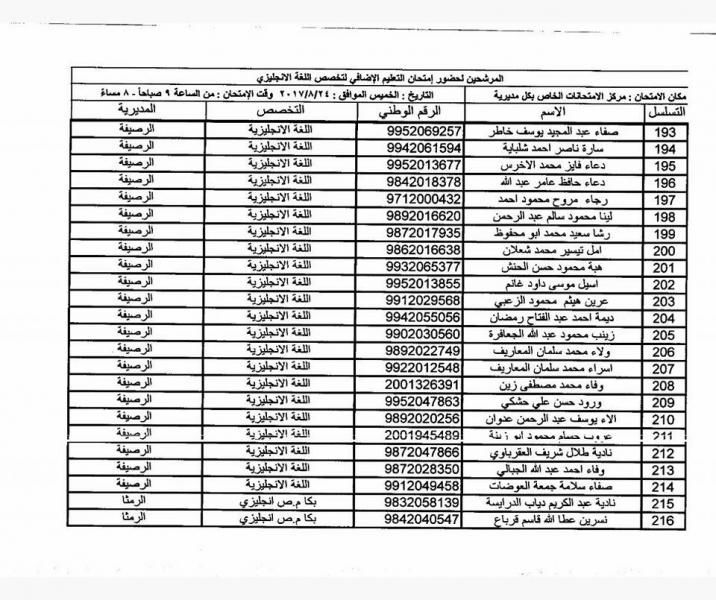 المرشحين لحضور إمتحان التعليم الإضافي لتخصص اللغة الانجليزي
مكان الامتحان : مركز الامتحانات الخاص بكل مديرية التاريخ : الخميس الموافق : ٢٠١٧/٨/٢٤ وقت الإمتحان : من الساعة ٩ صباحاً - ٨ مساءً
التسلسل الاسم الرقم الوطني التخصص المديرية
193 صفاء عبد المجيد يوسف خاطر 9952069257 اللغة الانجليزية الرصيفة
194 سارة ناصر احمد شلباية 9942061594 اللغة الانجليزية الرصيفة
195 دعاء فايز محمد الاخرس 9952013677 اللغة الانجليزية الرصيفة
196 دعاء حافظ عامر عبد الله 9842018378 اللغة الانجليزية الرصيفة
197 رجاء مروح محمود احمد 9712000432 اللغة الانجليزية الرصيفة
198 لينا محمود سالم عبد الرحمن 9892016620 اللغة الانجليزية الرصيفة
199 رشا سعيد محمد ابو محفوظ 9872017935 اللغة الانجليزية الرصيفة
200 امل تيسير محمد شعلان 9862016638 اللغة الانجليزية الرصيفة
201 هبة محمود حسن الحنش 9932065377 اللغة الانجليزية الرصيفة
202 اسيل موسى داود غانم 9952013855 اللغة الانجليزية الرصيفة
203 عرين هيثم محمود الزعبي 9912029568 اللغة الانجليزية الرصيفة
204 ديمة احمد عبد الفتاح رمضان 9942055056 اللغة الانجليزية الرصيفة
205 زينب محمود عبد الله الجعافرة 9902030560 اللغة الانجليزية الرصيفة
206 ولاء محمد سلمان المعاريف 9892022749 اللغة الانجليزية الرصيفة
207 اسراء محمد سلمان المعاريف 9922012548 اللغة الانجليزية الرصيفة
208 وفاء محمد مصطفى زين 2001326391 اللغة الانجليزية الرصيفة
209 ورود حسن علي حشكي 9952047863 اللغة الانجليزية الرصيفة
210 الاء يوسف عبد الرحمن عدوان 9892020256 اللغة الانجليزية الرصيفة
211 عروب حسام محمود ابو زينة 2001945489 اللغة الانجليزية الرصيفة
212 نادية طلال شريف العقرباوي 9872047866 اللغة الانجليزية الرصيفة
213 وفاء احمد عبد الله الجبالي 9872028350 اللغة الانجليزية الرصيفة
214 صفاء سلامة جمعة العوضات 9912049458 اللغة الانجليزية الرصيفة
215 نادية عبد الكريم دياب الدرايسة 9832058139 بكا م.ص انجليزي الرمثا
216 نسرين عطا الله قاسم قرباع 9842040547 بكا م.ص انجليزي الرمثا